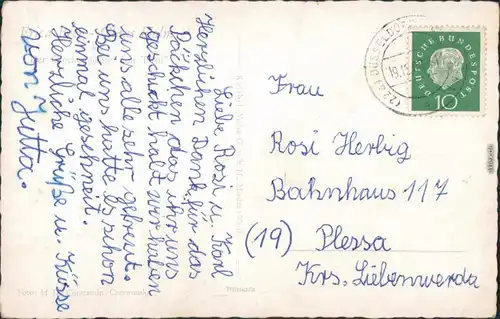 Liebe Rosi u. Karl
Herzlichen Dank für das
Päckchen das ihr uns
geschickt habt wir haben
uns alle sehr gefreut.
Bei uns hatte es schon
einmal geschneit.
Herzliche Grüße u. Küsse
von Jutta.
DÜSSELDORF
DEUTSCHE BUNDESPOST
10
Frau
Rosi Herbig
Bahnhaus 117
(19) Plessa
Krs. Liebenwerda